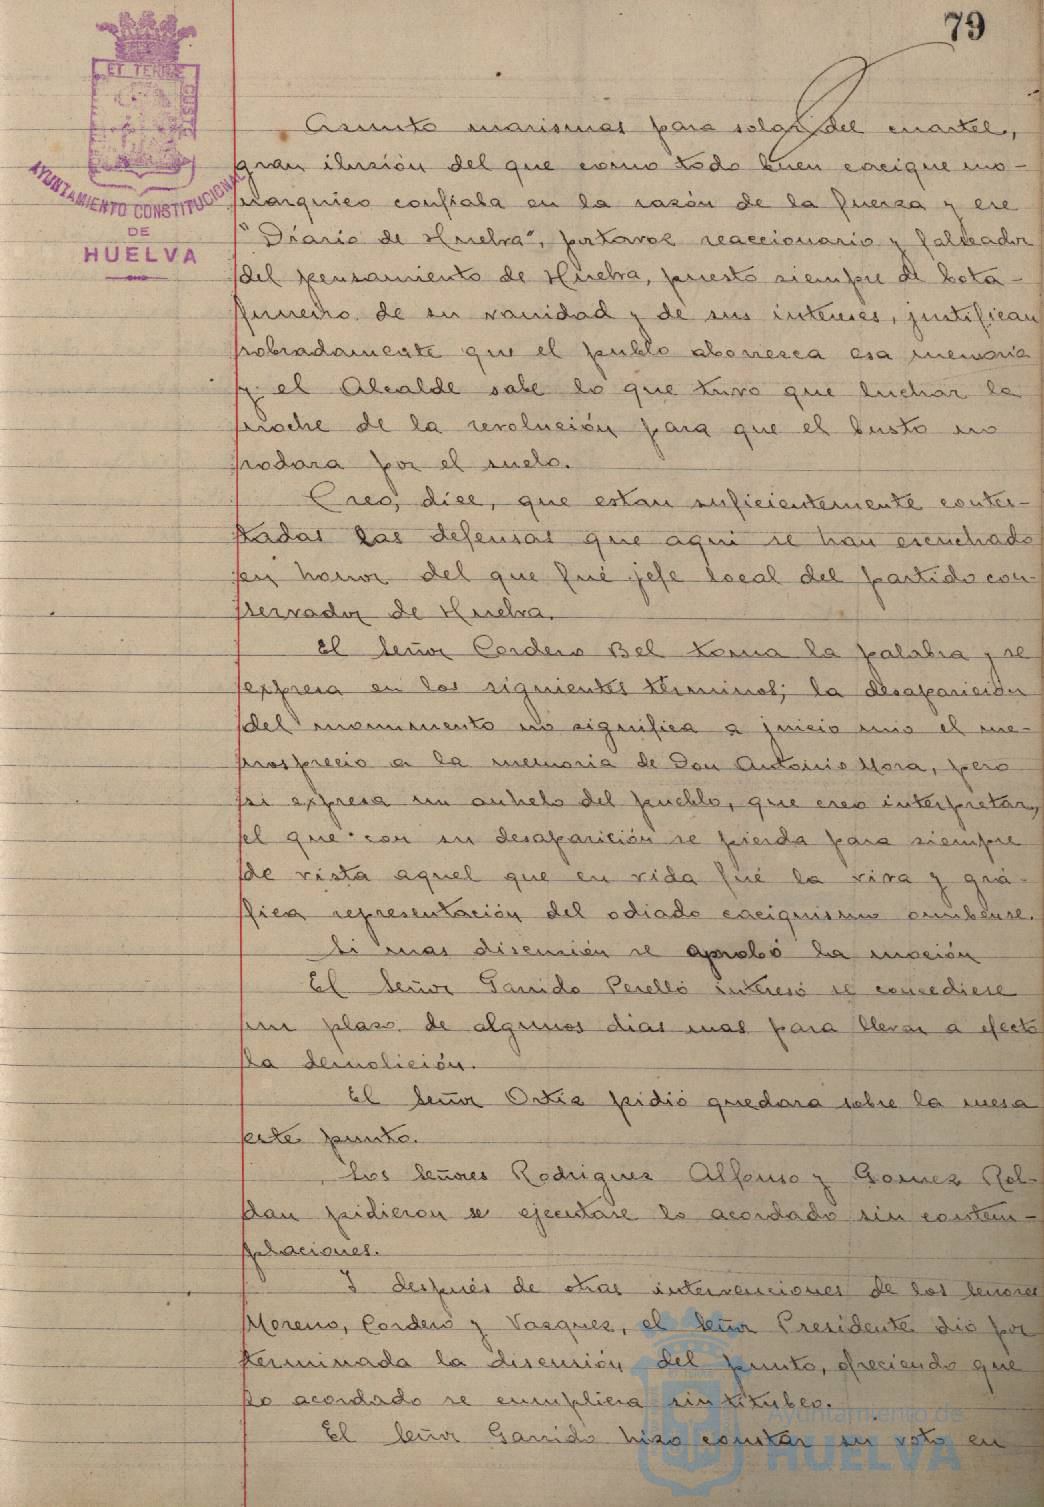 79
ET TERRE
CUSTO
AYUNTAMIENTO CONSTITUCIONAL
DE
HUELVA
Asunto marismas para solar del cuartel,
gran ilusión del que como todo buen cacique mo-
narquico confiaba en la razón de la fuerza y ese
"Diario de Huelva", portavoz reaccionario y falseador
del pensamiento de Huelva, puesto siempre de bota-
fumeiro de su vanidad y de sus intereses, justifican
sobradamente que el pueblo aborrezca esa memoria
y el Alcalde sabe lo que tuvo que luchar la
noche de la revolución para que el busto no
rodara por el suelo.
Creo, dice, que estan suficientemente contes-
tadas las defensas que aqui se han escuchado
en honor del que fué jefe local del partido con-
servador de Huelva.
El Señor Cordero Bel toma la palabra y se
expresa en los siguientes términos; la desaparición
del monumento no significa a juicio mio el me-
nosprecio a la memoria de Don Antonio Mora, pero
si expresa un anhelo del pueblo, que creo interpretar,
el que con su desaparición se pierda para siempre
de vista aquel que en vida fué la viva y grá-
fica representación del odiado caciquismo onubense.
Si mas discusión se aprobó la moción
El Señor Garrido Perelló interesó se concediese
un plazo de algunos dias mas para llevar a efecto
la demolición.
El Señor Ortiz pidió quedara sobre la mesa
este punto.
Los Señores Rodriguez Alfonso y Gomez Rol-
dan pidieron se ejecutase lo acordado sin contem-
placiones.
Y después de otras intervenciones de los Señores
Moreno, Cordero y Vazquez, el Señor Presidente dio por
terminada la discusión del punto, ofreciendo que
lo acordado se cumpliera sin titubeo.
El Señor Garrido hizo constar su voto en
Ayuntamiento de
HUELVA